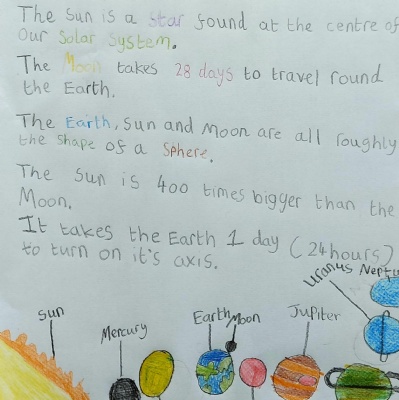 The Sun is a star found at the centre of
Our Solar System.
The Moon takes 28 days to travel round
the Earth.
The Earth, Sun and Moon are all roughly
the shape of a sphere.
The Sun is 400 times bigger than the
Moon.
It takes the Earth 1 day (24hours)
to turn on it's axis.
Uranus
Sun
Mercury
Earth
Moon
Jupiter